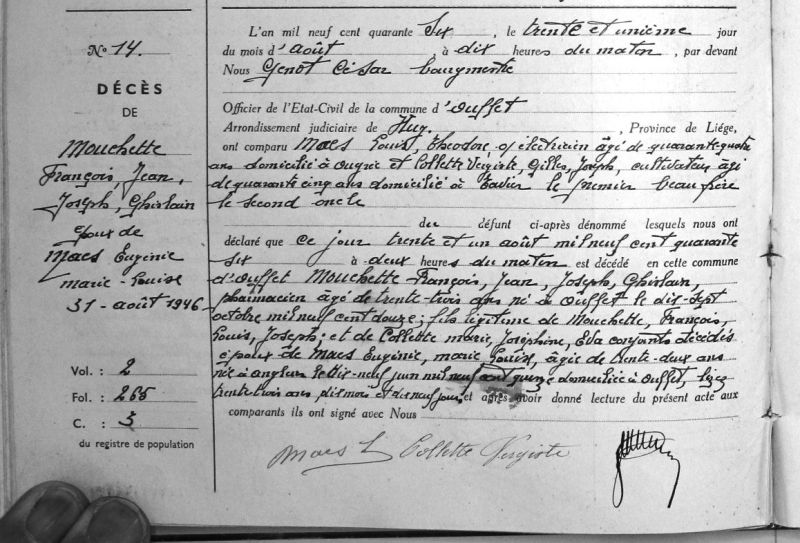 N° 14.
DÉCÈS
DE
Mouchette
François, Jean,
Joseph, Ghislain
époux de
Maes Eugénie
marie-Louise
31-août 1946
Vol. : 2
Fol. : 265
C. : 3
du registre de population
L'an mil neuf cent quarante six, le trente et unième jour
du mois d'août, à dix heures du matin, par devant
Nous Genot César bourgmestre
Officier de l'Etat-Civil de la commune d'Ouffet
Arrondissement judiciaire de Huy, Province de Liége,
ont comparu Maes Louis, Théodore, électricien âgé de quarante-quatre
ans domicilié à Ougrée et Collette Vergiste, Gilles, Joseph, cultivateur âgé
de quarante cinq ans domicilié à Tavier le premier beau frère
le second oncle
du défunt ci-après dénommé lesquels nous ont
déclaré que ce jour trente et un août mil neuf cent quarante
six à deux heures du matin est décédé en cette commune
d'Ouffet Mouchette François, Jean, Joseph, Ghislain,
pharmacien âgé de trente-trois ans né à Ouffet le dix-sept
octobre mil neuf cent douze; fils légitime de Mouchette, François,
Louis, Joseph; et de Collette marie, Joséphine, Eva conjoints décédés
époux de Maes Eugénie, marie Louise, âgée de trente-deux ans
née à angleur le dix-neuf juin mil neuf cent domiciliée à Ouffet,
trente trois ans, dix mois et et après avoir donné lecture du présent acte aux
comparants ils ont signé avec Nous
Maes L Collette Vergiste